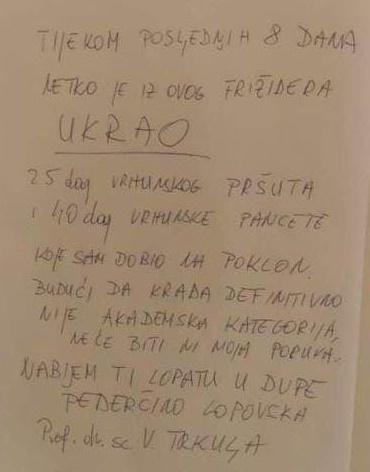 TIJEKOM POSLJEDNJIH 8 DANA
NETKO JE IZ OVOG FRIŽIDERA
UKRAO
25 dag VRHUNSKOG PRŠUTA
i 40 dag VRHUNSKE PANCETE
KOJE SAM DOBIO NA POKLON.
BUDUĆI DA KRAĐA DEFINITIVNO
NIJE AKADEMSKA KATEGORIJA,
NEĆE BITI NI MOJA PORUKA.
NABIJEM TI LOPATU U DUPE
PEDERČINO LOPOVSKA
Prof. dr. sc. V. TRKULJA